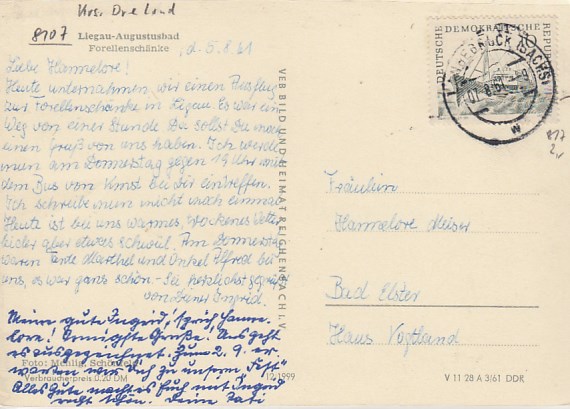 Krs. Dresd Land
8107
Liegau-Augustusbad
Forellenschänke
d. 5.8.61
Liebe Hannelore!
Heute unternahmen wir einen Ausflug
zur Forellenschänke in Liegau. Es war ein
Weg von einer Stunde. Da sollst Du auch
einen Gruß von uns haben. Ich werde
nun am Donnerstag gegen 19 Uhr mit
dem Bus von hier bei Dir eintreffen.
Ich schreibe nun nicht noch einmal.
Heute ist bei uns warmes, trockenes Wetter
leider aber etwas schwül. Am Donnerstag
waren Tante Marthel und Onkel Alfred bei
uns, es war ganz schön. Sei herzlichst gegrüßt
von Deiner Ingrid.
Meine gute Ingrid! Hanne-
lore! Grüße! Uns geht
es ausgezeichnet. Zum 2. 9. er-
warten wir Dich zu unserm "Fest"
Alles Gute macht es Euch mit Ingrid
recht schön. Deine
Foto: Mehlig,
Verbraucherpreis 0.20 DM
12/1999
VEB BILD UND HEIMAT REICHENBACH I. V.
DEUTSCHE DEMOKRATISCHE REPUBLIK
10
(SACHS)
8.61
w
817
Fräulein
Hannelore Meiser
Bad Elster
Haus Vogtland
V 11 28 A 3/61 DDR